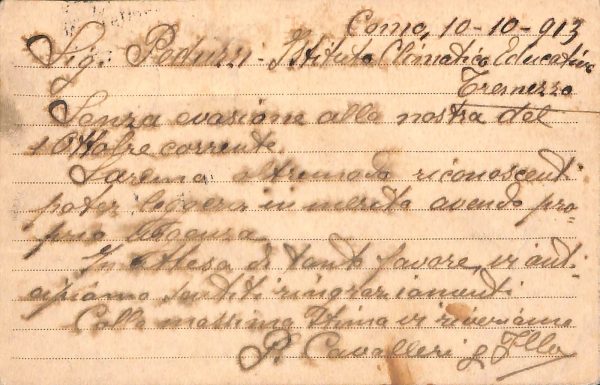 Como, 10-10-913
Sig. Peduzzi - Istituto Climatico Educativo
Tremezzo
Senza evasione alla nostra del
1 Ottobre corrente.
Saremo oltremodo riconoscenti
poter leggere in merito avendo pro=
pria urgenza
In attesa di tanto favore, vi anti-
cipiamo sentiti ringraziamenti
Colla massima stima vi riveriamo
P. Cavalleri & Figlio